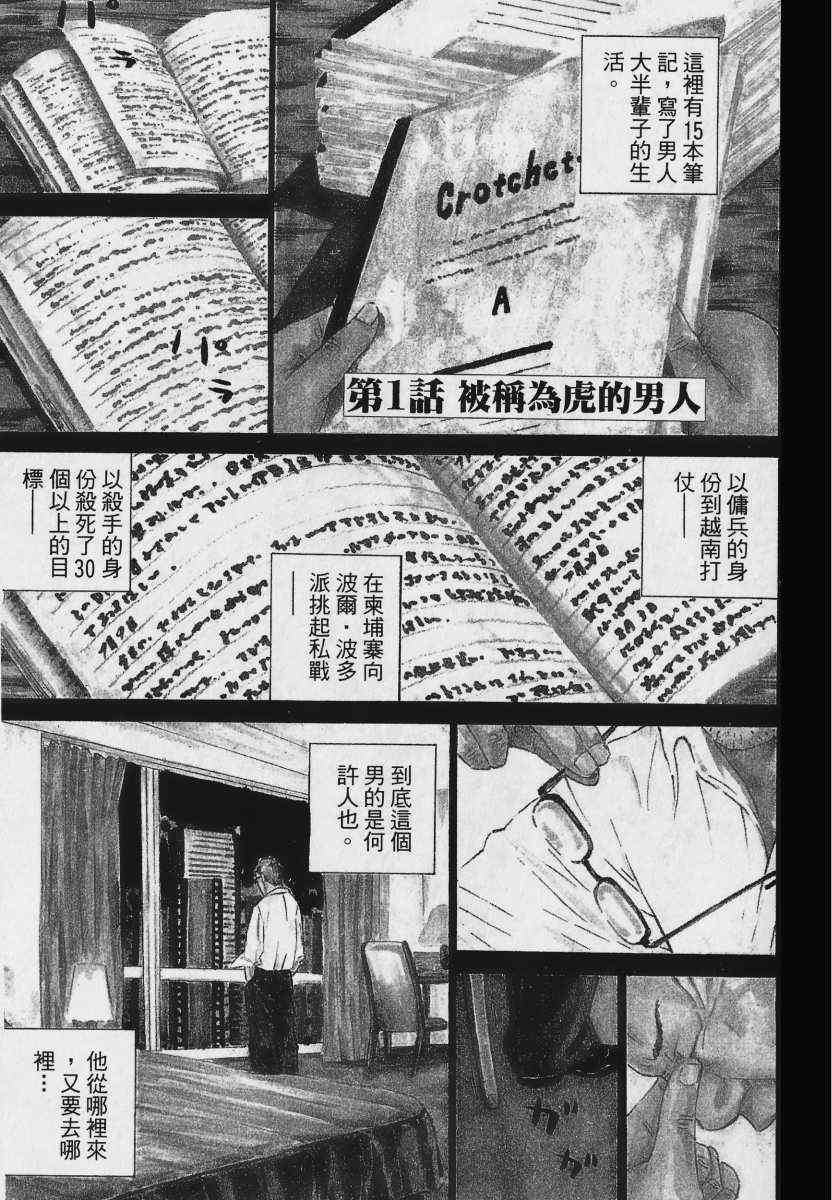 這裡有15本筆
記，寫了男人
大半輩子的生
活。
Crotchet
A
第1話 被稱為虎的男人
パ
ラ
パ
ラ
以傭兵的身
份到越南打
仗——
在柬埔寨向
波爾·波多
派挑起私戰
——
以殺手的身
份殺死了30
個以上的目
標——
到底這個
男的是何
許人也。
ガ
ガ
他從哪裡來
，又要去哪
裡…